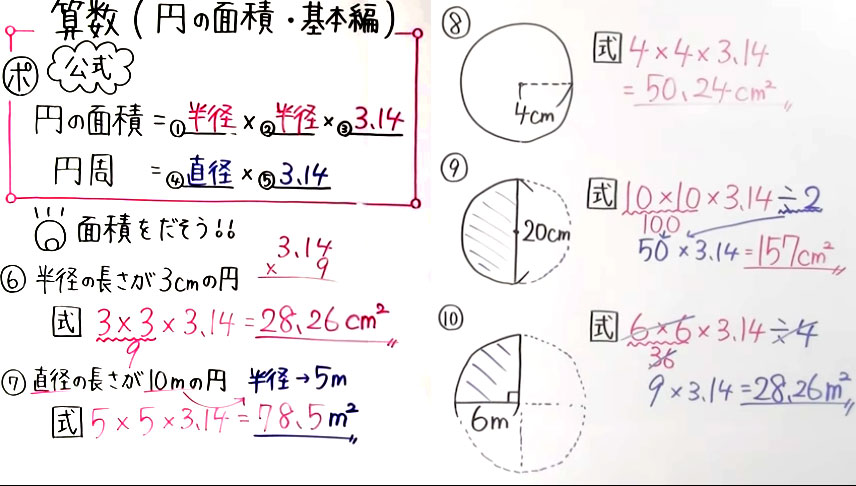 算数(円の面積・基本編)
ポ 公式
円の面積=①半径×②半径×③3.14
円周 =④直径×⑤3.14
面積をだそう!!
3.14
× 9
⑥ 半径の長さが3cmの円
式 3×3×3.14=28.26cm²
9
⑦ 直径の長さが10mの円 半径→5m
式 5×5×3.14=78.5m²
⑧
4cm
式 4×4×3.14
=50.24cm²
⑨
20cm
式 10×10×3.14÷2
100
50×3.14=157cm²
⑩
6m
式 6×6×3.14÷4
36
9×3.14=28.26m²